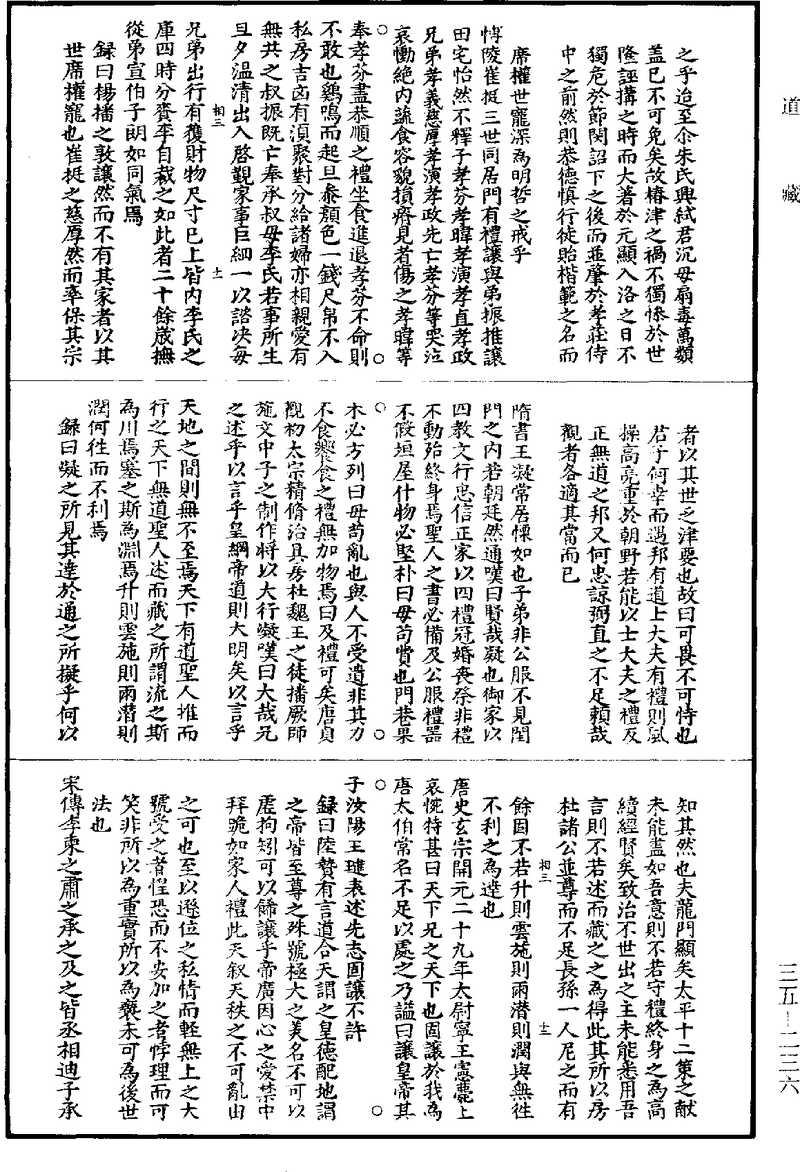 道藏
之乎迨至尒朱氏興弑君沉毋扇毒萬類
蓋已不可免矣故椿津之禍不獨慘於世
隆誣搆之時而大著於元顥入洛之日不
獨危於節閔詔下之後而並肇於孝莊侍
中之前然則恭德慎行徒貽楷範之名而
席權世寵深為明哲之戒乎
博陵崔挺三世同居門有禮讓與弟振推讓
田宅怡然不釋子孝芬孝暐孝演孝直孝政
兄弟孝義慈厚孝演孝政先亡孝芬等哭泣
哀慟絕內蔬食容貌損瘠見者傷之孝暐等
奉孝芬盡恭順之禮坐食進退孝芬不命則
不敢也鷄鳴而起旦叅顏色一錢尺帛不入
私房吉凶有湏聚對分給諸婦亦相親愛有
無共之叔振既亡奉承叔毋李氏若事所生
旦夕溫清出入啓覲家事巨細一以諮决每
相三 十一
兄弟出行有獲財物尺寸已上皆内李氏之
庫四時分賚李自裁之如此者二十餘歲撫
從弟宣伯子朗如同氣焉
錄曰楊播之敦讓然而不有其家者以其
世席權寵也崔挺之慈厚然而卒保其宗
者以其世之津要也故曰可畏不可恃也
君子何幸而遇邦有道士大夫有禮則風
操高亮重於朝野若能以士大夫之禮及
正無道之邦又何忠諒弼直之不足賴哉
觀者各適其當而已
隋書王凝常居慄如也子弟非公服不見閨
門之内若朝廷然通嘆曰賢哉凝也御家以
四教文行忠信正家以四禮冠婚喪祭非禮
不動殆終身焉聖人之書必備及公服禮器
不假垣屋什物必堅朴曰毋苟費也門巷果
木必方列曰毋苟亂也與人不受遺非其力
不食饗食之禮無加物焉曰及禮可矣唐貞
觀初太宗精脩治具房杜魏王之徒播厥師
旨文中子之制作將以大行凝嘆曰大哉兄
之述乎以言乎皇綱帝道則大明矣以言乎
天地之間則無不至焉天下有道聖人推而
行之天下無道聖人述而藏之所謂流之斯
為川焉塞之斯為淵焉升則雲施則雨潜則
潤何徃而不利焉
錄曰凝之所見其達於通之所擬乎何以
知其然也夫龍門顯矣太平十二策之献
未能盡如吾意則不若守禮終身之為高
續經賢矣致治不世出之主未能悉用吾
言則不若述而藏之之為得此其所以房
杜諸公並尊而不足長孫一人尼之而有
相三 十二
餘固不若升則雲施則雨潜則潤與無徃
不利之為達也
唐史玄宗開元二十九年太尉寧王憲薨上
哀惋特甚曰天下兄之天下也固讓於我為
唐太伯常名不足以處之乃謚曰讓皇帝其
子汝陽王璡表述先志固讓不許
錄曰陸贄有言道合天謂之皇德配地謂
之帝皆至尊之殊號極大之美名不可以
虛拘矧可以餙讓乎帝廣因心之愛禁中
拜跪如家人禮此天叙天秩之不可亂由
之可也至以遜位之私情而輕無上之大
號受之者惶恐而不安加之者悖理而可
笑非所以為重實所以為褻未可為後世
法也
宋傳李柬之肅之承之及之皆丞相迪子承
三五－二三六